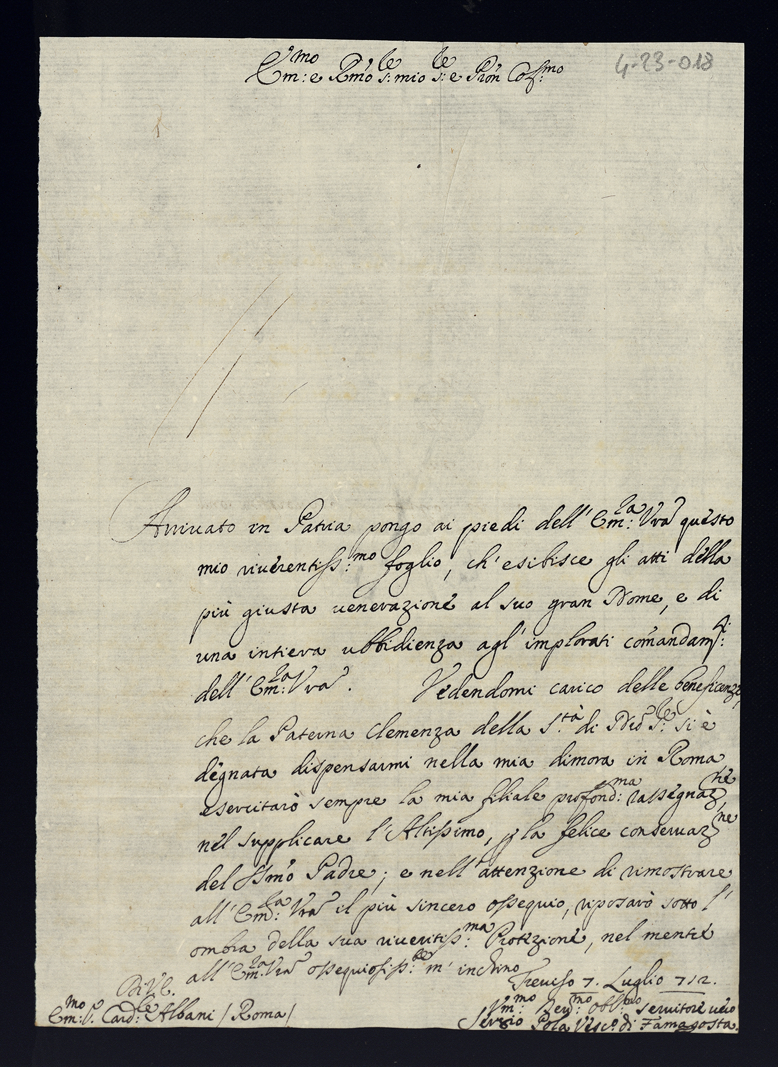 4-23-018
Em:mo e Rmo S:re mio S:re e Pron Col:mo
Arrivato in Patria pongo ai piedi dell' Em:za Vra questo
mio riverentiss:mo foglio, ch' esibisce gli atti della
più giusta venerazione al suo gran Nome, e di
una intiera ubbidienza agl' implorati comandam:ti
dell' Em:za Vra. Vedendomi carico delle beneficenze,
che la Paterna Clemenza della S.tà di Nro S.re si è
degnata dispensarmi nella mia dimora in Roma
esercitarò sempre la mia filiale profond:ma rassegnaz:ne
nel supplicare l'Altissimo, p la felice conservaz:ne
del Ssmo Padre; e nell' attenzione di rimostrare
all' Em:za Vra il più sincero ossequio, riposarò sotto l'
ombra della sua riveritiss:ma Protezione, nel mentre
all' Em:za Vra ossequiosiss:te m' inchino
Treviso 7. Luglio 712.
Di V. E.
Em:mo S. Card:le Albani / Roma /
Vm:mo Dev:mo obl:mo servitore vero
Sergio Pola Vesc.o di Famagosta